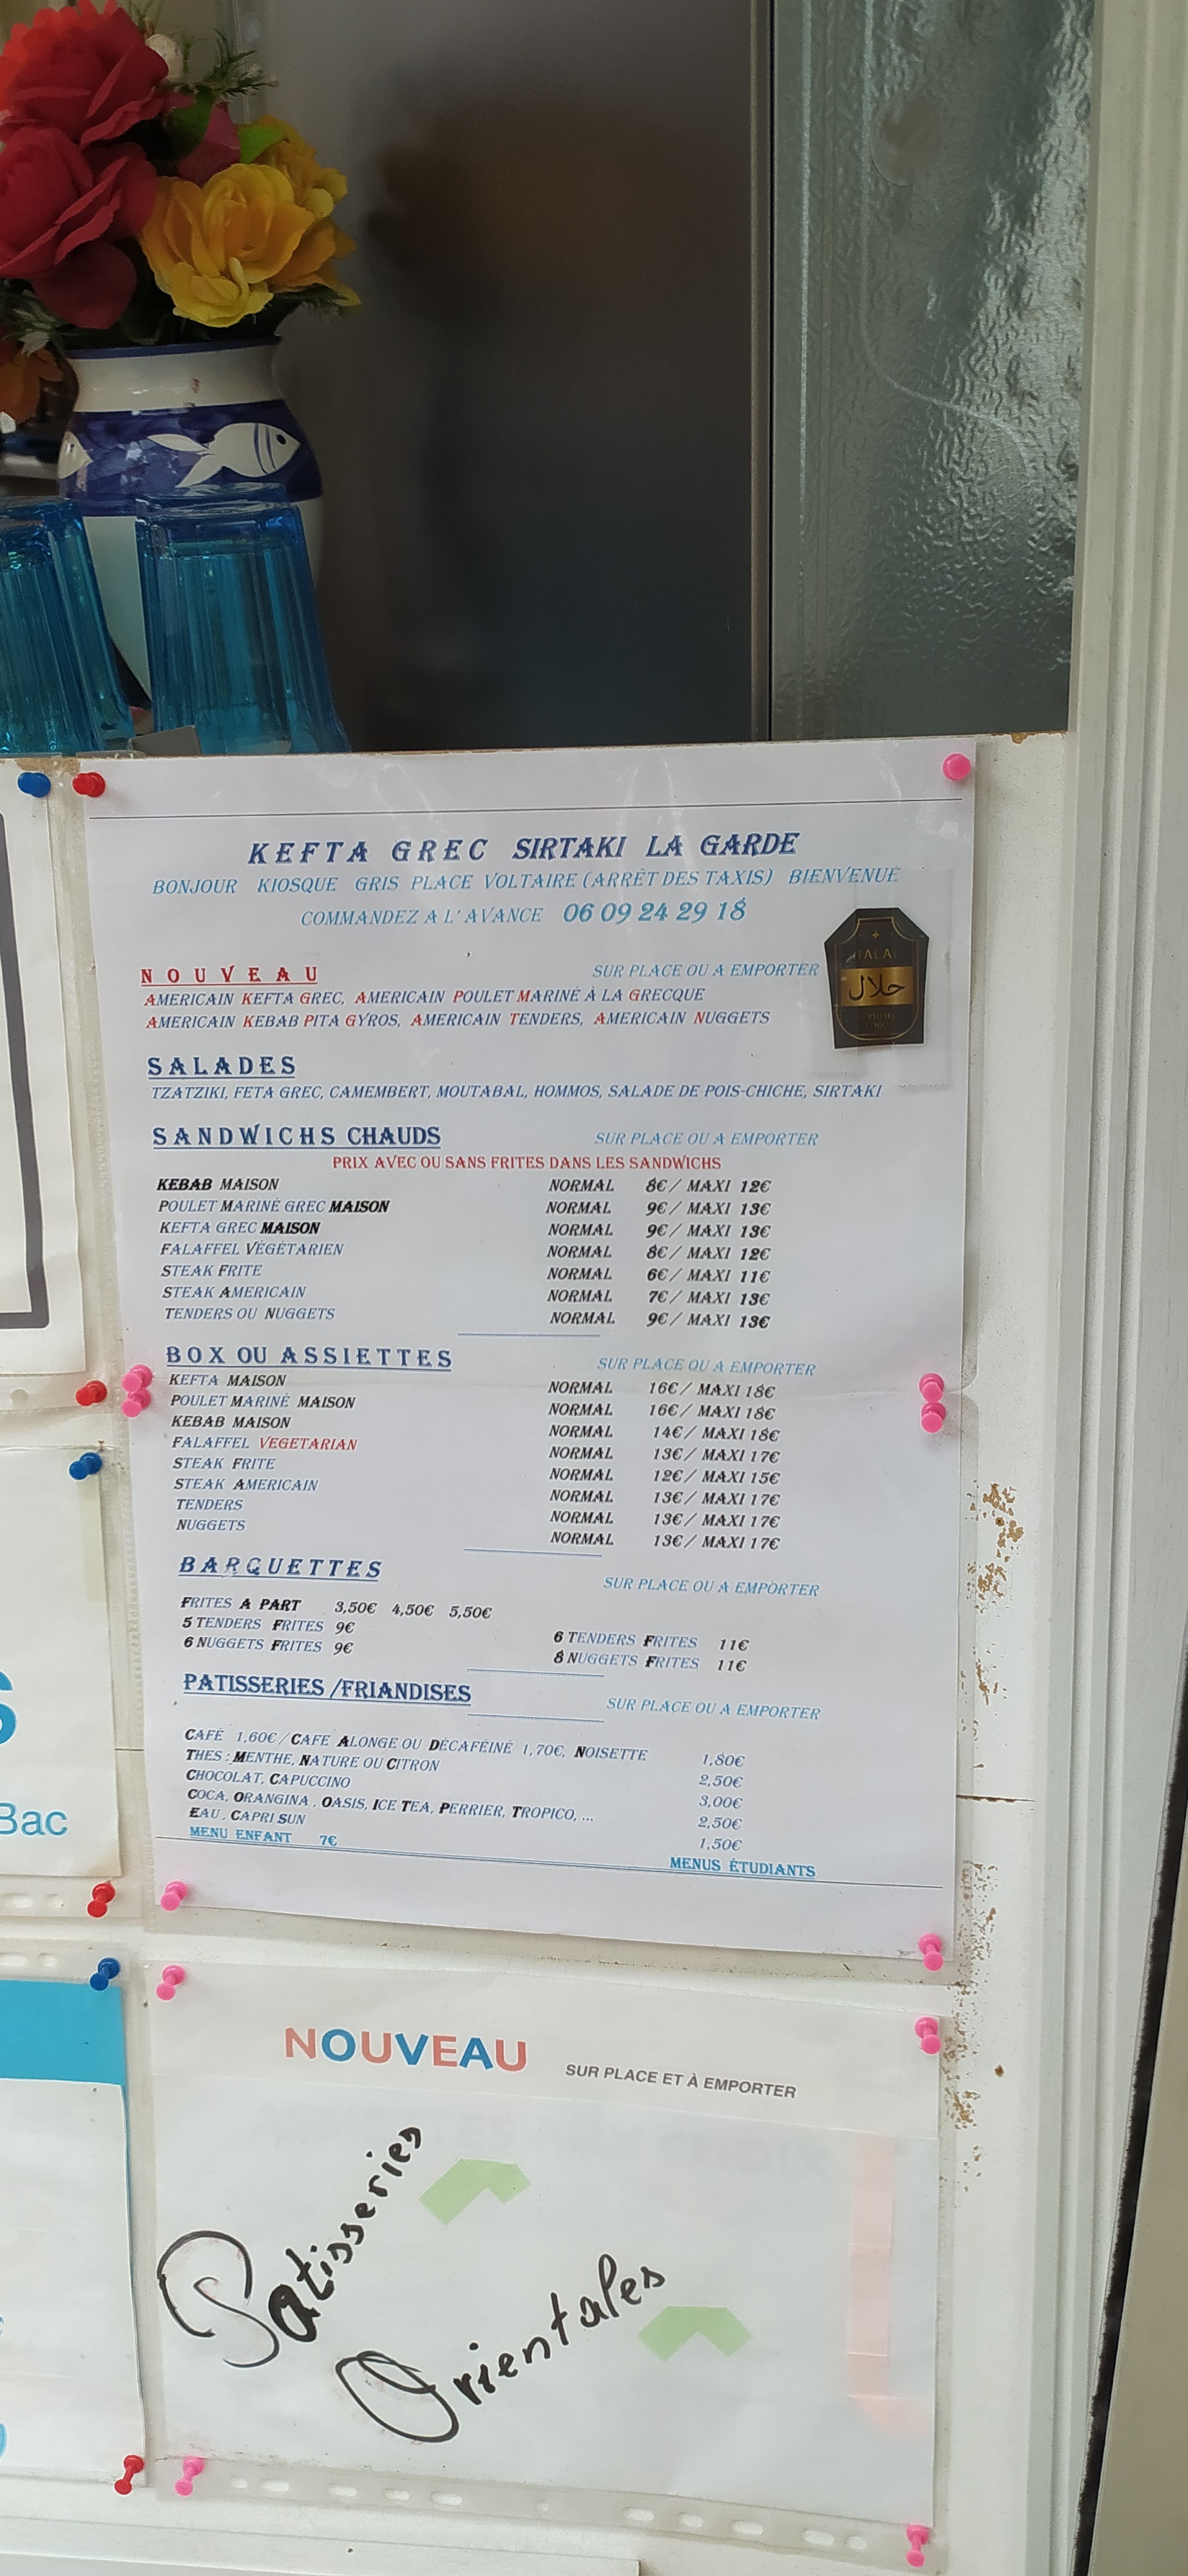 KEFTA GREC SIRTAKI LA GARDE
BONJOUR KIOSQUE GRIS PLACE VOLTAIRE (ARRÊT DES TAXIS) BIENVENUE
COMMANDEZ A L'AVANCE 06 09 24 29 18
HALAL
حلال
NOUVEAU SUR PLACE OU A EMPORTER
AMERICAIN KEFTA GREC, AMERICAIN POULET MARINÉ À LA GRECQUE
AMERICAIN KEBAB PITA GYROS, AMERICAIN TENDERS, AMERICAIN NUGGETS
SALADES
TZATZIKI, FETA GREC, CAMEMBERT, MOUTABAL, HOMMOS, SALADE DE POIS-CHICHE, SIRTAKI
SANDWICHS CHAUDS SUR PLACE OU A EMPORTER
PRIX AVEC OU SANS FRITES DANS LES SANDWICHS
KEBAB MAISON NORMAL 8€ / MAXI 12€
POULET MARINÉ GREC MAISON NORMAL 9€ / MAXI 13€
KEFTA GREC MAISON NORMAL 9€ / MAXI 13€
FALAFFEL VÉGÉTARIEN NORMAL 8€ / MAXI 12€
STEAK FRITE NORMAL 6€ / MAXI 11€
STEAK AMERICAIN NORMAL 7€ / MAXI 13€
TENDERS OU NUGGETS NORMAL 9€ / MAXI 13€
BOX OU ASSIETTES SUR PLACE OU A EMPORTER
KEFTA MAISON NORMAL 16€ / MAXI 18€
POULET MARINÉ MAISON NORMAL 16€ / MAXI 18€
KEBAB MAISON NORMAL 14€ / MAXI 18€
FALAFFEL VEGETARIAN NORMAL 13€ / MAXI 17€
STEAK FRITE NORMAL 12€ / MAXI 15€
STEAK AMERICAIN NORMAL 13€ / MAXI 17€
TENDERS NORMAL 13€ / MAXI 17€
NUGGETS NORMAL 13€ / MAXI 17€
BARQUETTES SUR PLACE OU A EMPORTER
FRITES A PART 3,50€ 4,50€ 5,50€
5 TENDERS FRITES 9€ 6 TENDERS FRITES 11€
6 NUGGETS FRITES 9€ 8 NUGGETS FRITES 11€
PATISSERIES /FRIANDISES SUR PLACE OU A EMPORTER
CAFÉ 1,60€ / CAFE ALONGE OU DÉCAFÉINÉ 1,70€, NOISETTE 1,80€
THES : MENTHE, NATURE OU CITRON 2,50€
CHOCOLAT, CAPUCCINO 3,00€
COCA, ORANGINA , OASIS, ICE TEA, PERRIER, TROPICO, ... 2,50€
EAU , CAPRI SUN 1,50€
MENU ENFANT 7€ MENUS ÉTUDIANTS
Bac
NOUVEAU SUR PLACE ET À EMPORTER
Patisseries
Orientales